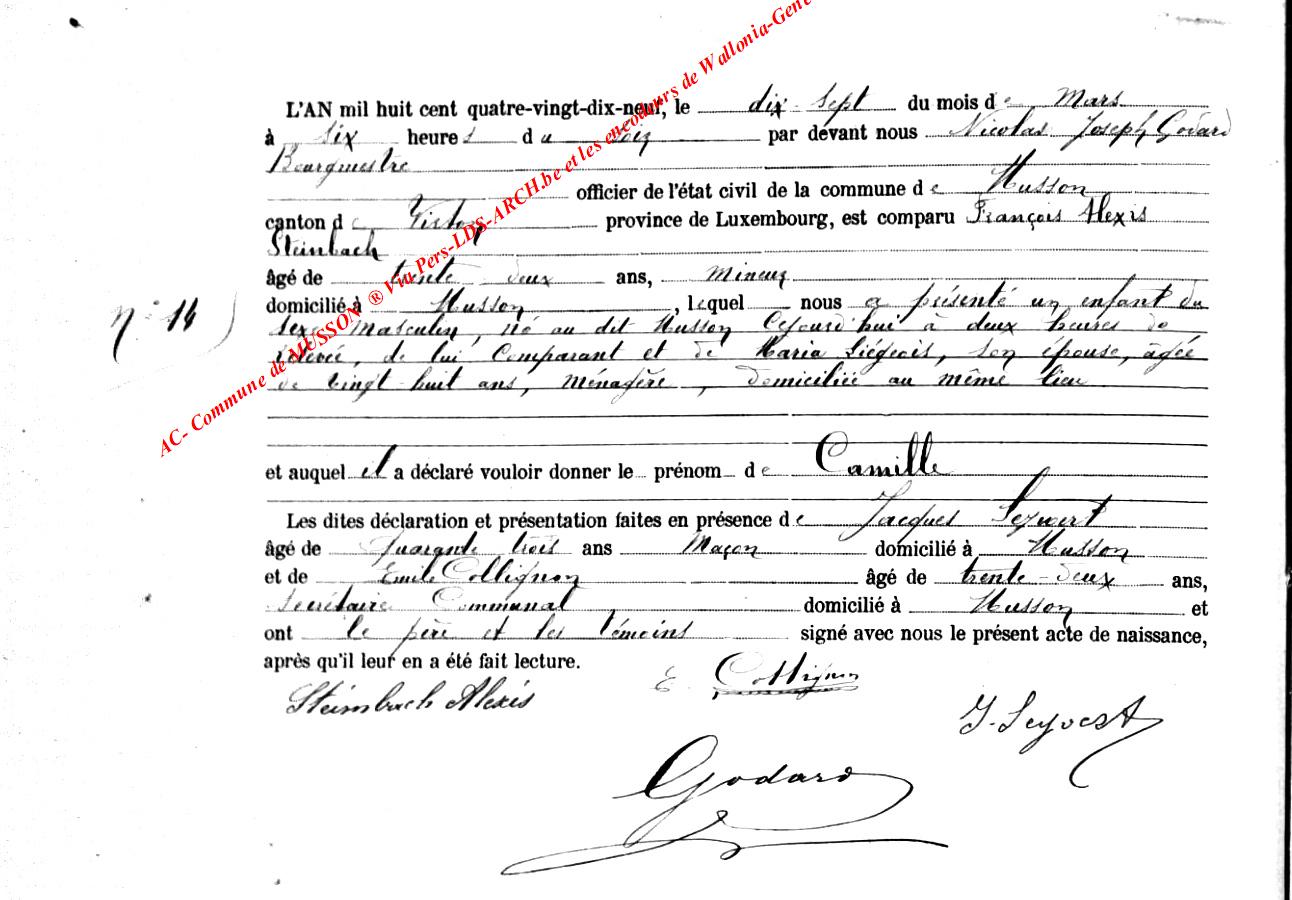 L'AN mil huit cent quatre-vingt-dix-neuf, le dix-sept du mois de Mars
à six heures du soir par devant nous Nicolas Joseph Godard
Bourgmestre
officier de l'état civil de la commune de Musson
canton de Virton province de Luxembourg, est comparu François Alexis
Steinbach
âgé de trente-deux ans, mineur
domicilié à Musson, lequel nous a présenté un enfant du
n° 14)
sexe masculin, né au dit Musson Cejourd'hui à deux heures de
relevée, de lui Comparant et de Maria Liégeois, son épouse, âgée
de vingt-huit ans, Ménagère, domiciliée au même lieu
et auquel il a déclaré vouloir donner le prénom de Camille
Les dites déclaration et présentation faites en présence de Jacques Seywert
âgé de Quarante trois ans Maçon domicilié à Musson
et de Emile Collignon âgé de trente-deux ans,
Secrétaire Communal domicilié à Musson et
ont le père et les témoins signé avec nous le présent acte de naissance,
après qu'il leur en a été fait lecture.
E. Collignon
Steinbach Alexis
J. Seywert
Godard
AC- Commune de MUSSON ® Via Pers-LDS-ARCH.be et les encodeurs de Wallonia-Gene